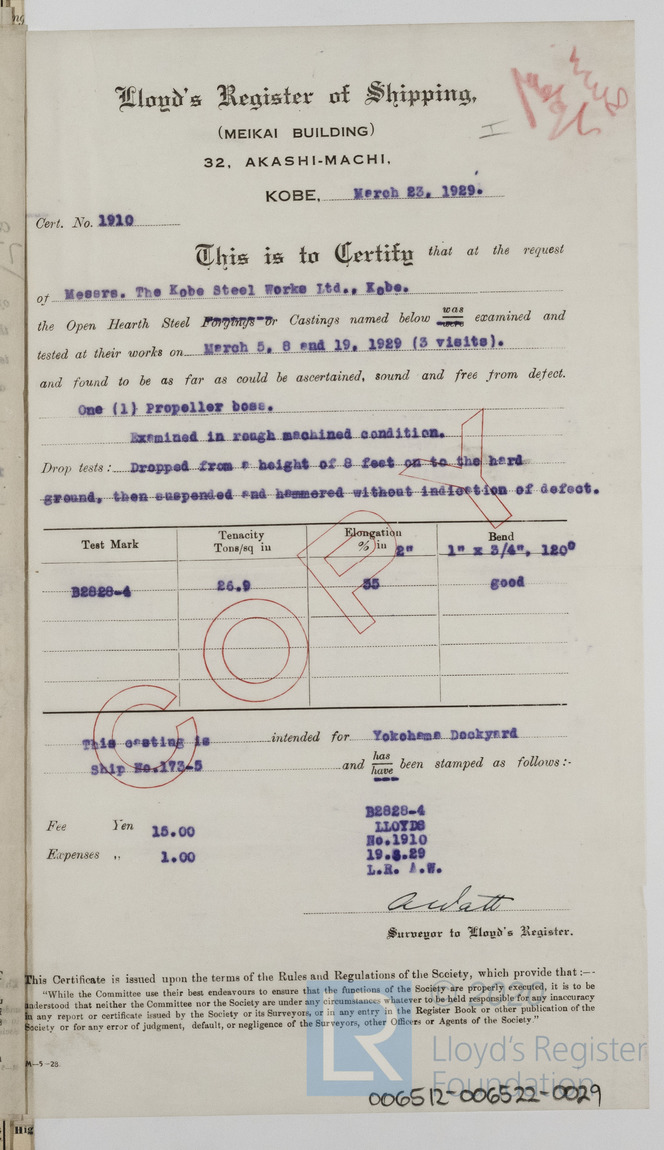 Lloyd's Register of Shipping,
(MEIKAI BUILDING)
32, AKASHI-MACHI,
KOBE, March 23, 1929.
Cert. No. 1910
This is to Certify that at the request
of Messrs. The Kobe Steel Works Ltd., Kobe.
the Open Hearth Steel Forgings or Castings named below was were examined and
tested at their works on March 5, 8 and 19, 1929 (3 visits).
and found to be as far as could be ascertained, sound and free from defect.
One (1) Propeller boss.
Examined in rough machined condition.
Drop tests: Dropped from a height of 8 feet on to the hard
ground, then suspended and hammered without indication of defect.
Test Mark Tenacity Tons/sq in Elongation % in 2" Bend 1" x 3/4", 120°
B2828-4 26.9 35 good
COPY
This casting is intended for Yokohama Dockyard
Ship No.173-5 and has have been stamped as follows:-
B2828-4
LLOYDS
No.1910
19.3.29
L.R. A.W.
Fee Yen 15.00
Expenses „ 1.00
A Watt
Surveyor to Lloyd's Register.
This Certificate is issued upon the terms of the Rules and Regulations of the Society, which provide that :—-
"While the Committee use their best endeavours to ensure that the functions of the Society are properly executed, it is to be
understood that neither the Committee nor the Society are under any circumstances whatever to be held responsible for any inaccuracy
in any report or certificate issued by the Society or its Surveyors, or in any entry in the Register Book or other publication of the
Society or for any error of judgment, default, or negligence of the Surveyors, other Officers or Agents of the Society."
M—5-28.
LR
Lloyd's Register
Foundation
006512-006522-0029
Hig